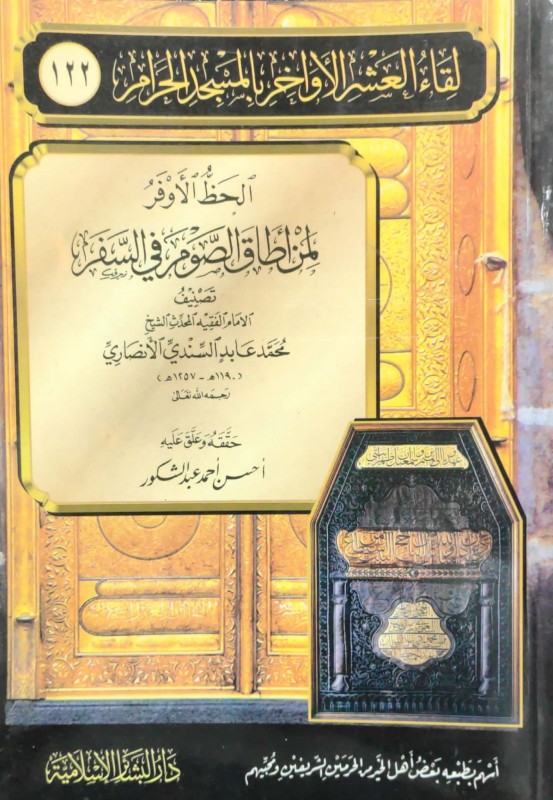 لِقَاءُ العَشْرِ الأَوَاخِرِ بالمَسْجِدِ الحَرَامِ
١٢٢
الحَظُّ الأَوْفَرُ
لِمَنْ أَطَاقَ الصَّوْمَ فِي السَّفَرِ
تَصْنِيفُ
الإمَامِ الفَقِيهِ المُحَدِّثِ الشَّيْخِ
مُحَمَّد عَابِدِ السِّنْدِيِّ الأَنْصَارِيِّ
(١١٩٠هـ - ١٢٥٧هـ)
رَحِمَهُ اللهُ تَعَالَى
حَقَّقَهُ وَعَلَّقَ عَلَيْهِ
أحسن أحمد عبد الشكور
أَسْهَمَ بِطَبْعِهِ بَعْضُ أَهْلِ الخَيْرِ مِنَ الحَرَمَيْنِ الشَّرِيفَيْنِ وَمُحِبِّيهِم
دَارُ البَشَائِرِ الإِسْلَامِيَّة